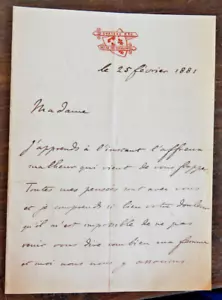 le 25 février 1881
Madame
J'apprends à l'instant l'affreux
malheur qui vient de vous frapper
Toutes mes pensées sont avec vous
et je comprends si bien votre douleur
qu'il m'est impossible de ne pas
venir vous dire combien ma femme
et moi nous nous y associons